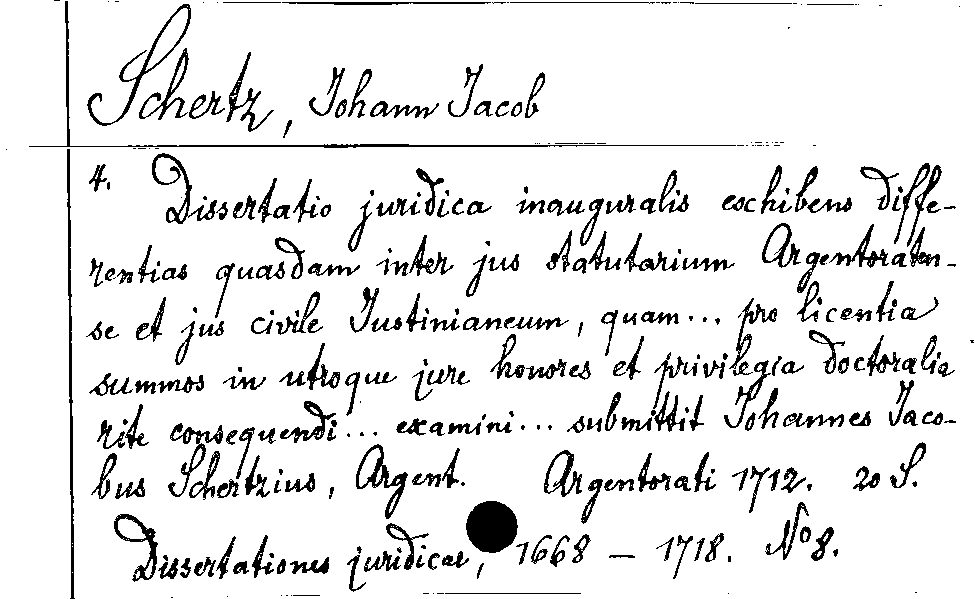 Schertz, Johann Jacob
4. Dissertatio juridica inauguralis exhibens diffe-
rentias quasdam inter jus statutarium Argentoraten-
se et jus civile Justinianeum, quam... pro licentia
summos in utroque jure honores et privilegia doctoralia
rite consequendi... examini... submittit Johannes Jaco-
bus Schertzius, Argent. Argentorati 1712. 20 S.
Dissertationes juridicae, 1668 – 1718. No 8.